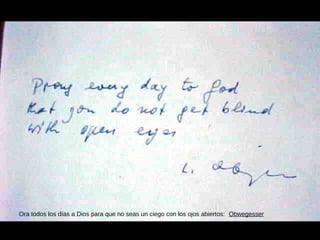 Pray every day to God
that you do not get blind
with open eyes!
Ora todos los días a Dios para que no seas un ciego con los ojos abiertos: Obwegesser